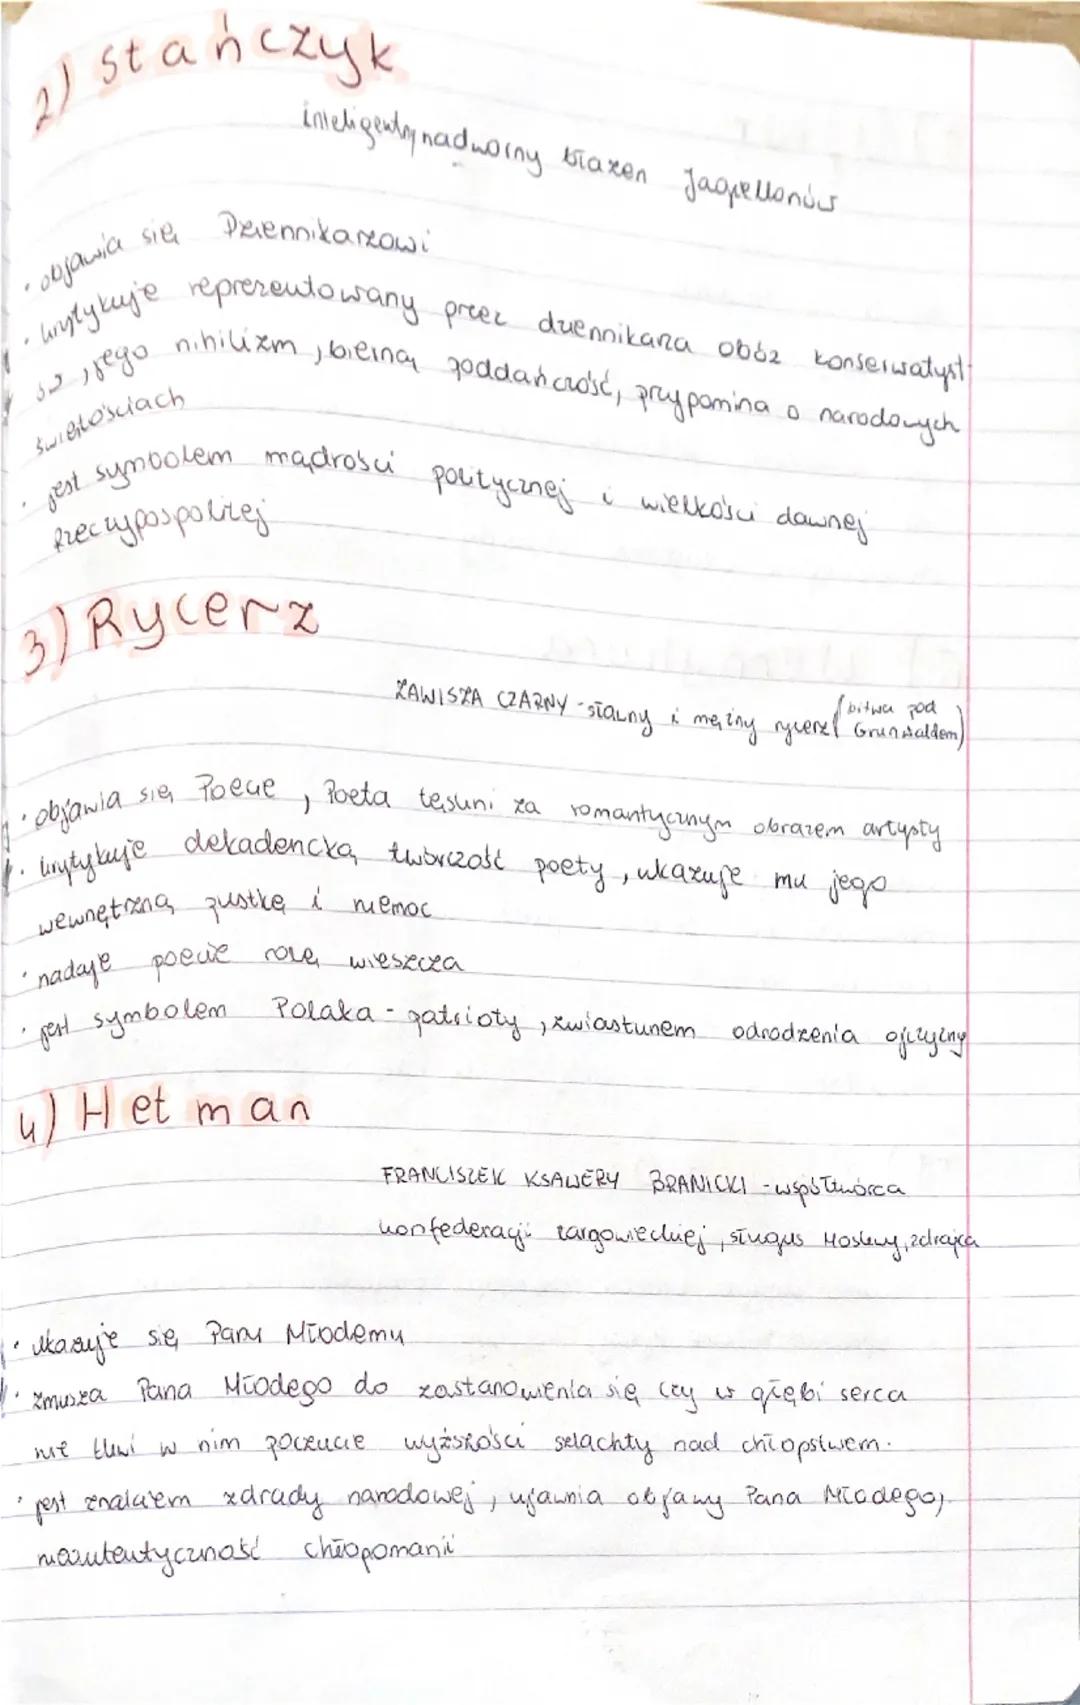 2) Stańczyk
inteligentny nadworny błazen Jagiellonów
· objawia się Dziennikarzowi
· krytykuje reprezentowany przez dziennikarza obóz konserwatyst-
ów, jego nihilizm, bierną poddańczość, przypomina o narodowych
świętościach
· jest symbolem mądrości politycznej i wielkości dawnej
Rzeczypospolitej
3) Rycerz
ZAWISZA CZARNY - sławny i mężny rycerz (bitwa pod
Grunwaldem)
· objawia się Poecie, Poeta tęskni za romantycznym obrazem artysty
· krytykuje dekadencką twórczość poety, ukazuje mu jego
wewnętrzną pustkę i niemoc
· nadaje poecie rolę wieszcza
· jest symbolem Polaka - patrioty, zwiastunem odrodzenia ojczyzny
4) Hetman
FRANCISZEK KSAWERY BRANICKI - współtwórca
konfederacji targowickiej, sługus Moskwy, zdrajca
· ukazuje się Panu Młodemu
· zmusza Pana Młodego do zastanowienia się czy w głębi serca
nie tkwi w nim poczucie wyższości szlachty nad chłopstwem.
· jest znakiem zdrady narodowej, ujawnia obawy Pana Młodego,
nieautentyczność chłopomanii